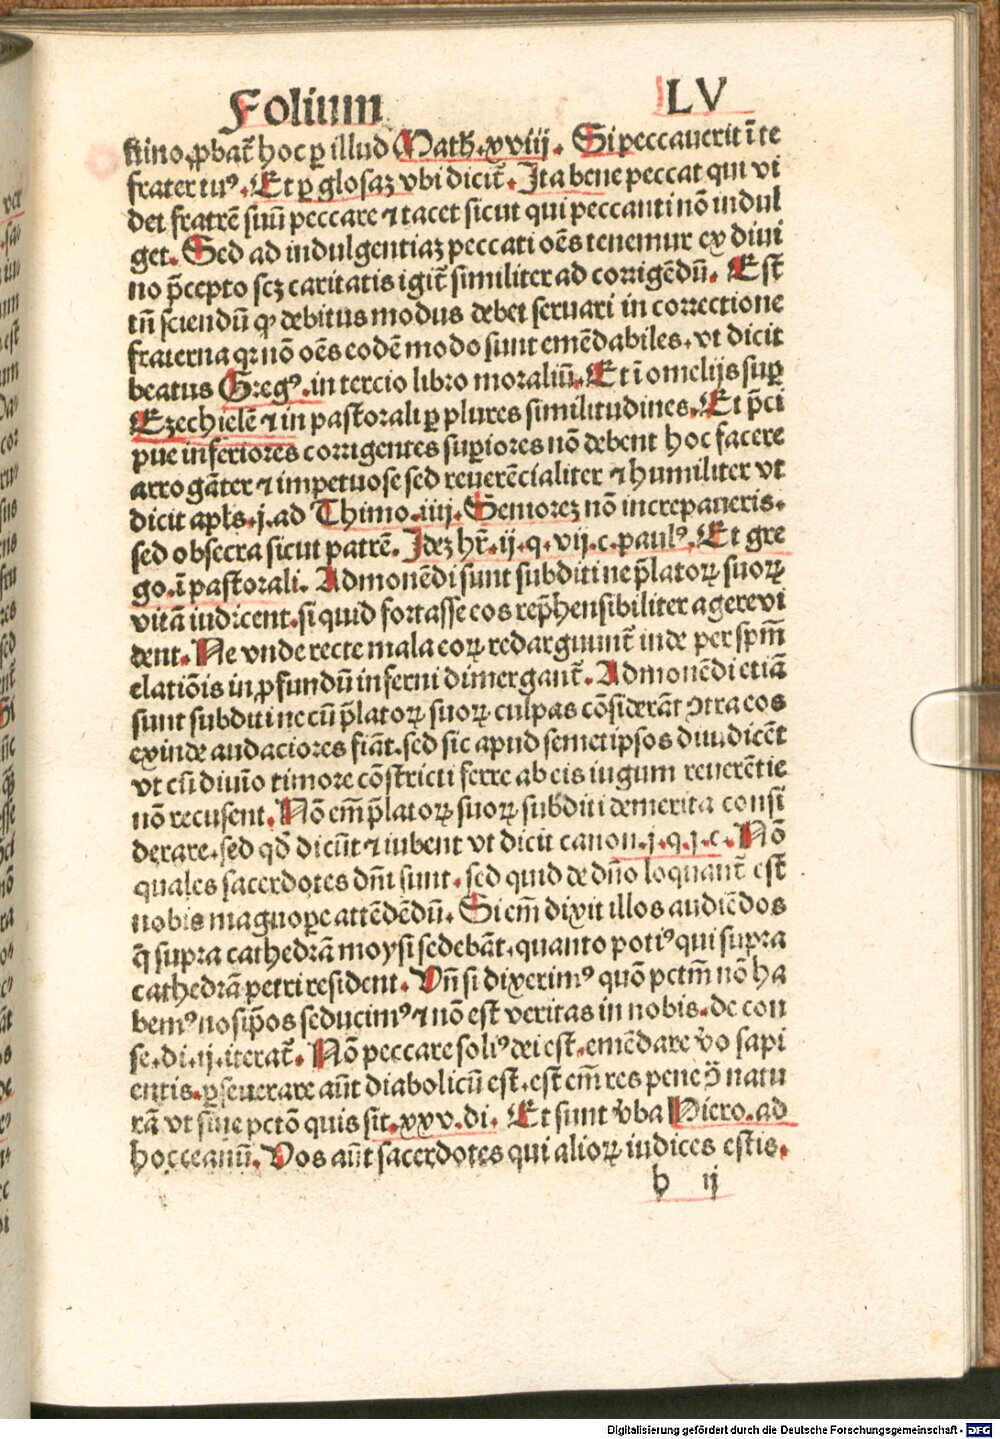 Folium LV
stino. ꝓbat̃ hoc ꝑ illud Math. xviij. Si peccauerit ĩ te
frater tuꝰ. Et ꝑ glosaꝫ vbi dicit̃. Ita bene peccat qui vi
det fratrẽ suũ peccare ⁊ tacet sicut qui peccanti nõ indul
get. Sed ad indulgentiaꝫ peccati oẽs tenemur ex diui
no p̃cepto scꝫ caritatis igit̃ similiter ad corrigẽdũ. Est
tñ sciendũ ꝙ debitus modus debet seruari in correctione
fraterna qꝛ nõ oẽs eodẽ modo sunt emẽdabiles. vt dicit
beatus Gregꝰ. in tercio libro moraliũ. Et ĩ omelijs suꝑ
Ezechielẽ ⁊ in pastorali ꝑ plures similitudines. Et p̃ci
pue inferiores corrigentes suꝑiores nõ debent hoc facere
arrogãter ⁊ impetuose sed reuerẽcialiter ⁊ humiliter vt
dicit apl̃s. j. ad Thimo. iiij. Senioreꝫ nõ increpaueris.
sed obsecra sicut patrẽ. Ideꝫ hr̃. ij. q. vij. c. paulꝰ. Et gre
go. ĩ pastorali. Admonẽdi sunt subditi ne p̃latoꝝ suoꝝ
vitã iudicent. si quid fortasse eos rep̃hensibiliter agere vi
dent. Ne vnde recte mala eoꝝ redarguunt̃ inde per spm̃
elatiõis in ꝓfundũ inferni dimergant̃. Admonẽdi etiã
sunt subditi ne cũ p̃latoꝝ suoꝝ culpas cõsiderãt ꝯtra eos
exinde audaciores fiãt. sed sic apud semetipsos diiudicẽt
vt cũ diuĩo timore cõstricti ferre ab eis iugum reuerẽtie
nõ recusent. Nõ em̃ p̃latoꝝ suoꝝ subditi demerita consi
derare. sed qd̃ dicũt ⁊ iubent vt dicit canon. j. q. j. c. Nõ
quales sacerdotes dñi sunt. sed quid de dño loquant̃ est
nobis magnoꝑe attẽdẽdũ. Si em̃ dixit illos audiẽdos
q̃ supra cathedrã moysi sedebãt. quanto potiꝰ qui supra
cathedrã petri resident. Vñ si dixerimꝰ quõ pctm̃ nõ ha
bemꝰ nosip̃os seducimꝰ ⁊ nõ est veritas in nobis. de con
se. di. ij. iterat̃. Nõ peccare soliꝰ dei est. emẽdare v̾o sapi
entis. ꝑseuerare aũt diabolicũ est. est em̃ res pene ꝯ̃ natu
rã vt sine pctõ quis sit. xxv. di. Et sunt v̾ba Hiero. ad
hocceanũ. Vos aũt sacerdotes qui alioꝝ iudices estis.
h ij
Digitalisierung gefördert durch die Deutsche Forschungsgemeinschaft - DFG